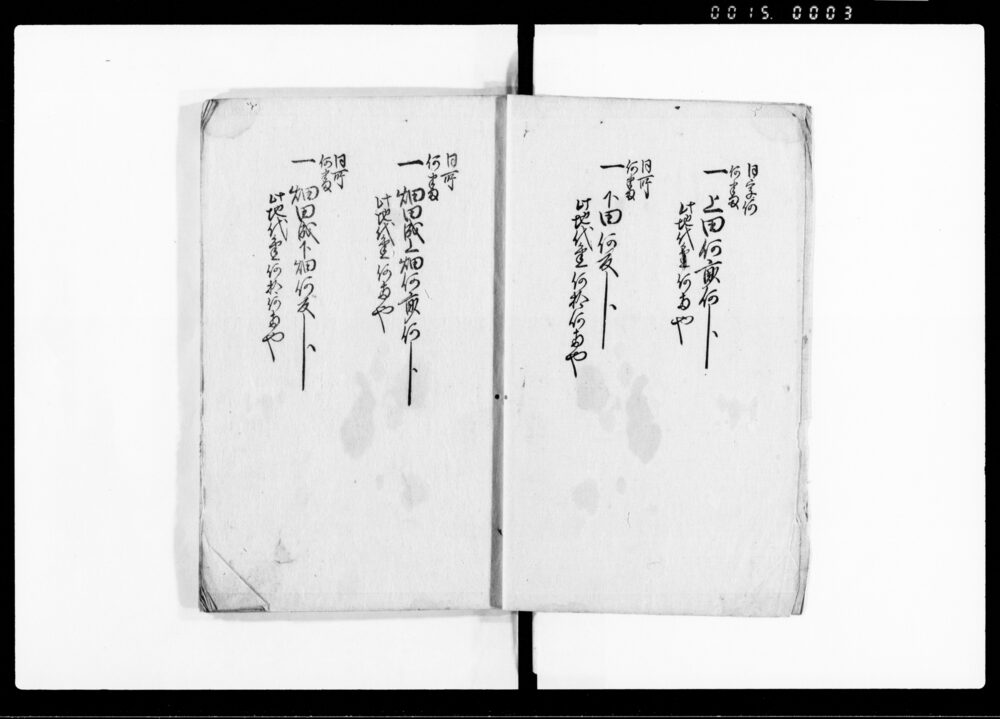 0015. 0003
同字何
何番
一 上田何畝何
此地代金何両也
同所
何番
一 下田何反
此地代金何拾何両也
同所
何番
一 畑田成上畑何畝何
此地代金何両也
同所
何番
一 畑田成下畑何反
此地代金何拾何両也